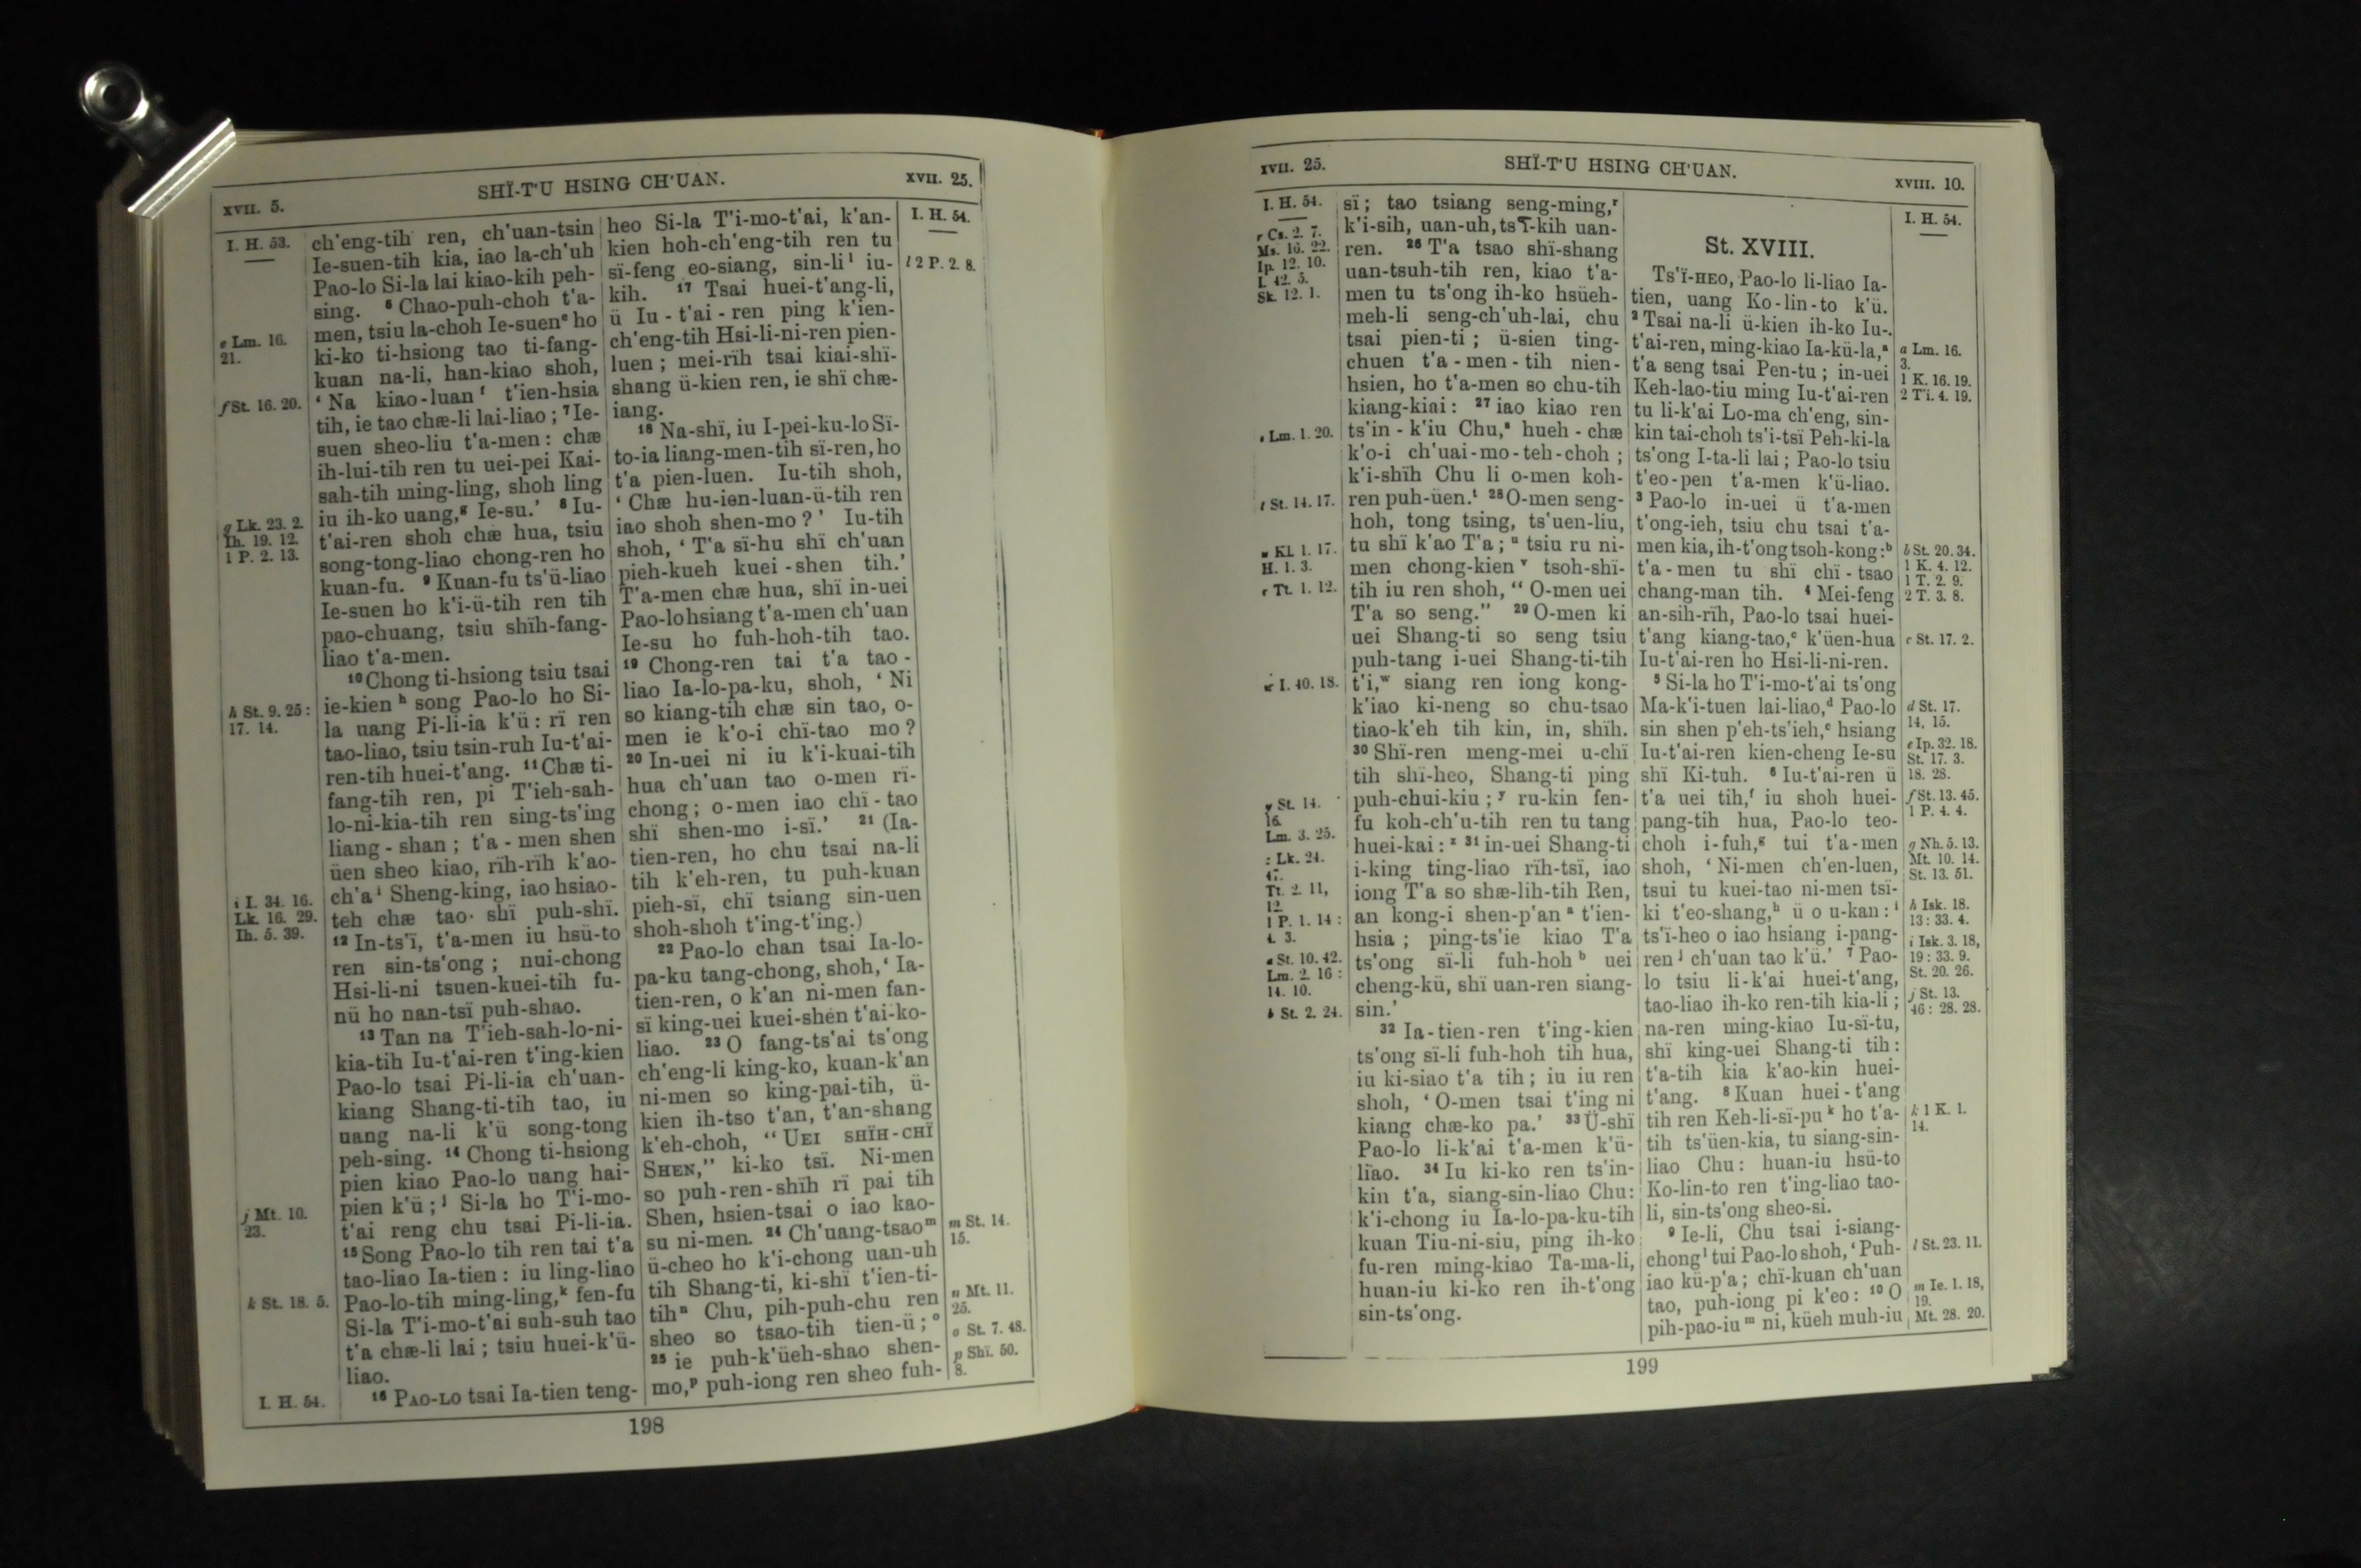 xvii. 5.
SHÏ-T'U HSING CH'UAN.
xvii. 25.
I. H. 53.
e Lm. 16.
21.
f St. 16. 20.
g Lk. 23. 2.
Ih. 19. 12.
1 P. 2. 13.
h St. 9. 25 :
17. 14.
i I. 34. 16.
Lk. 16. 29.
Ih. 5. 39.
j Mt. 10.
23.
k St. 18. 5.
I. H. 54.
ch'eng-tih ren, ch'uan-tsin
Ie-suen-tih kia, iao la-ch'uh
Pao-lo Si-la lai kiao-kih peh-
sing. 6 Chao-puh-choh t'a-
men, tsiu la-choh Ie-suen e ho
ki-ko ti-hsiong tao ti-fang-
kuan na-li, han-kiao shoh,
‘ Na kiao-luan f t'ien-hsia
tih, ie tao chæ-li lai-liao ; 7 Ie-
suen sheo-liu t'a-men : chæ
ih-lui-tih ren tu uei-pei Kai-
sah-tih ming-ling, shoh ling
iu ih-ko uang, g Ie-su.’ 8 Iu-
t'ai-ren shoh chæ hua, tsiu
song-tong-liao chong-ren ho
kuan-fu. 9 Kuan-fu ts'ü-liao
Ie-suen ho k'i-ü-tih ren tih
pao-chuang, tsiu shïh-fang-
liao t'a-men.
10 Chong ti-hsiong tsiu tsai
ie-kien h song Pao-lo ho Si-
la uang Pi-li-ia k'ü : rï ren
tao-liao, tsiu tsin-ruh Iu-t'ai-
ren-tih huei-t'ang. 11 Chæ ti-
fang-tih ren, pi T'ieh-sah-
lo-ni-kia-tih ren sing-ts'ing
liang-shan ; t'a-men shen
üen sheo kiao, rïh-rïh k'ao-
ch'a i Sheng-king, iao hsiao-
teh chæ tao shï puh-shï.
12 In-ts'ï, t'a-men iu hsü-to
ren sin-ts'ong ; nui-chong
Hsi-li-ni tsuen-kuei-tih fu-
nü ho nan-tsï puh-shao.
13 Tan na T'ieh-sah-lo-ni-
kia-tih Iu-t'ai-ren t'ing-kien
Pao-lo tsai Pi-li-ia ch'uan-
kiang Shang-ti-tih tao, iu
uang na-li k'ü song-tong
peh-sing. 14 Chong ti-hsiong
pien kiao Pao-lo uang hai-
pien k'ü ; j Si-la ho T'i-mo-
t'ai reng chu tsai Pi-li-ia.
15 Song Pao-lo tih ren tai t'a
tao-liao Ia-tien : iu ling-liao
Pao-lo-tih ming-ling, k fen-fu
Si-la T'i-mo-t'ai suh-suh tao
t'a chæ-li lai ; tsiu huei-k'ü-
liao.
16 Pao-lo tsai Ia-tien teng-
heo Si-la T'i-mo-t'ai, k'an-
kien hoh-ch'eng-tih ren tu
sï-feng eo-siang, sin-li l iu-
kih. 17 Tsai huei-t'ang-li,
ü Iu-t'ai-ren ping k'ien-
ch'eng-tih Hsi-li-ni-ren pien-
luen ; mei-rïh tsai kiai-shï-
shang ü-kien ren, ie shï chæ-
iang.
18 Na-shï, iu I-pei-ku-lo Sï-
to-ia liang-men-tih sï-ren, ho
t'a pien-luen. Iu-tih shoh,
‘ Chæ hu-ien-luan-ü-tih ren
iao shoh shen-mo ?’ Iu-tih
shoh, ‘ T'a sï-hu shï ch'uan
pieh-kueh kuei-shen tih.’
T'a-men chæ hua, shï in-uei
Pao-lo hsiang t'a-men ch'uan
Ie-su ho fuh-hoh-tih tao.
19 Chong-ren tai t'a tao-
liao Ia-lo-pa-ku, shoh, ‘ Ni
so kiang-tih chæ sin tao, o-
men ie k'o-i chï-tao mo ?
20 In-uei ni iu k'i-kuai-tih
hua ch'uan tao o-men rï-
chong ; o-men iao chï-tao
shï shen-mo i-sï.’ 21 (Ia-
tien-ren, ho chu tsai na-li
tih k'eh-ren, tu puh-kuan
pieh-sï, chï tsiang sin-uen
shoh-shoh t'ing-t'ing.)
22 Pao-lo chan tsai Ia-lo-
pa-ku tang-chong, shoh, ‘ Ia-
tien-ren, o k'an ni-men fan-
sï king-uei kuei-shen t'ai-ko-
liao. 23 O fang-ts'ai ts'ong
ch'eng-li king-ko, kuan-k'an
ni-men so king-pai-tih, ü-
kien ih-tso t'an, t'an-shang
k'eh-choh, “ Uei shïh-chï
Shen,” ki-ko tsï. Ni-men
so puh-ren-shïh rï pai tih
Shen, hsien-tsai o iao kao-
su ni-men. 24 Ch'uang-tsao m
ü-cheo ho k'i-chong uan-uh
tih Shang-ti, ki-shï t'ien-ti-
tih n Chu, pih-puh-chu ren
sheo so tsao-tih tien-ü ; o
25 ie puh-k'üeh-shao shen-
mo, p puh-iong ren sheo fuh-
I. H. 54.
l 2 P. 2. 8.
m St. 14.
15.
n Mt. 11.
25.
o St. 7. 48.
p Shï. 50.
8.
198
xvii. 25.
SHÏ-T'U HSING CH'UAN.
xviii. 10.
I. H. 54.
r Cs. 2. 7.
Ms. 16. 22.
Ip. 12. 10.
I. 42. 5.
Sk. 12. 1.
s Lm. 1. 20.
t St. 14. 17.
u Kl. 1. 17.
H. 1. 3.
v Tt. 1. 12.
w I. 40. 18.
y St. 14.
16.
Lm. 3. 25.
z Lk. 24.
47.
Tt. 2. 11,
12.
1 P. 1. 14 :
4. 3.
a St. 10. 42.
Lm. 2. 16 :
14. 10.
b St. 2. 24.
sï ; tao tsiang seng-ming, r
k'i-sih, uan-uh, tsï-kih uan-
ren. 26 T'a tsao shï-shang
uan-tsuh-tih ren, kiao t'a-
men tu ts'ong ih-ko hsüeh-
meh-li seng-ch'uh-lai, chu
tsai pien-ti ; ü-sien ting-
chuen t'a-men-tih nien-
hsien, ho t'a-men so chu-tih
kiang-kiai : 27 iao kiao ren
ts'in-k'iu Chu, s hueh-chæ
k'o-i ch'uai-mo-teh-choh ;
k'i-shïh Chu li o-men koh-
ren puh-üen. t 28 O-men seng-
hoh, tong tsing, ts'uen-liu,
tu shï k'ao T'a ; u tsiu ru ni-
men chong-kien v tsoh-shï-
tih iu ren shoh, “ O-men uei
T'a so seng.” 29 O-men ki
uei Shang-ti so seng tsiu
puh-tang i-uei Shang-ti-tih
t'i, w siang ren iong kong-
k'iao ki-neng so chu-tsao
tiao-k'eh tih kin, in, shïh.
30 Shï-ren meng-mei u-chï
tih shï-heo, Shang-ti ping
puh-chui-kiu ; y ru-kin fen-
fu koh-ch'u-tih ren tu tang
huei-kai : z 31 in-uei Shang-ti
i-king ting-liao rïh-tsï, iao
iong T'a so shæ-lih-tih Ren,
an kong-i shen-p'an a t'ien-
hsia ; ping-ts'ie kiao T'a
ts'ong sï-li fuh-hoh b uei
cheng-kü, shï uan-ren siang-
sin.’
32 Ia-tien-ren t'ing-kien
ts'ong sï-li fuh-hoh tih hua,
iu ki-siao t'a tih ; iu iu ren
shoh, ‘ O-men tsai t'ing ni
kiang chæ-ko pa.’ 33 Ü-shï
Pao-lo li-k'ai t'a-men k'ü-
liao. 34 Iu ki-ko ren ts'in-
kin t'a, siang-sin-liao Chu :
k'i-chong iu Ia-lo-pa-ku-tih
kuan Tiu-ni-siu, ping ih-ko
fu-ren ming-kiao Ta-ma-li,
huan-iu ki-ko ren ih-t'ong
sin-ts'ong.
St. XVIII.
Ts'ï-heo, Pao-lo li-liao Ia-
tien, uang Ko-lin-to k'ü.
2 Tsai na-li ü-kien ih-ko Iu-
t'ai-ren, ming-kiao Ia-kü-la, a
t'a seng tsai Pen-tu ; in-uei
Keh-lao-tiu ming Iu-t'ai-ren
tu li-k'ai Lo-ma ch'eng, sin-
kin tai-choh ts'i-tsï Peh-ki-la
ts'ong I-ta-li lai ; Pao-lo tsiu
t'eo-pen t'a-men k'ü-liao.
3 Pao-lo in-uei ü t'a-men
t'ong-ieh, tsiu chu tsai t'a-
men kia, ih-t'ong tsoh-kong : b
t'a-men tu shï chï-tsao
chang-man tih. 4 Mei-feng
an-sih-rïh, Pao-lo tsai huei-
t'ang kiang-tao, c k'üen-hua
Iu-t'ai-ren ho Hsi-li-ni-ren.
5 Si-la ho T'i-mo-t'ai ts'ong
Ma-k'i-tuen lai-liao, d Pao-lo
sin shen p'eh-ts'ieh, e hsiang
Iu-t'ai-ren kien-cheng Ie-su
shï Ki-tuh. 6 Iu-t'ai-ren ü
t'a uei tih, f iu shoh huei-
pang-tih hua, Pao-lo teo-
choh i-fuh, g tui t'a-men
shoh, ‘ Ni-men ch'en-luen,
tsui tu kuei-tao ni-men tsï-
ki t'eo-shang, h ü o u-kan : i
ts'ï-heo o iao hsiang i-pang-
ren j ch'uan tao k'ü.’ 7 Pao-
lo tsiu li-k'ai huei-t'ang,
tao-liao ih-ko ren-tih kia-li ;
na-ren ming-kiao Iu-sï-tu,
shï king-uei Shang-ti tih :
t'a-tih kia k'ao-kin huei-
t'ang. 8 Kuan huei-t'ang
tih ren Keh-li-sï-pu k ho t'a-
tih ts'üen-kia, tu siang-sin-
liao Chu : huan-iu hsü-to
Ko-lin-to ren t'ing-liao tao-
li, sin-ts'ong sheo-si.
9 Ie-li, Chu tsai i-siang-
chong l tui Pao-lo shoh, ‘ Puh-
iao kü-p'a ; chï-kuan ch'uan
tao, puh-iong pi k'eo : 10 O
pih-pao-iu m ni, küeh muh-iu
I. H. 54.
a Lm. 16.
3.
1 K. 16. 19.
2 T'i. 4. 19.
b St. 20. 34.
1 K. 4. 12.
1 T. 2. 9.
2 T. 3. 8.
c St. 17. 2.
d St. 17.
14, 15.
e Ip. 32. 18.
St. 17. 3.
18. 28.
f St. 13. 45.
1 P. 4. 4.
g Nh. 5. 13.
Mt. 10. 14.
St. 13. 51.
h Isk. 18.
13 : 33. 4.
i Isk. 3. 18,
19 : 33. 9.
St. 20. 26.
j St. 13.
46 : 28. 28.
k 1 K. 1.
14.
l St. 23. 11.
m Ie. 1. 18,
19.
Mt. 28. 20.
199